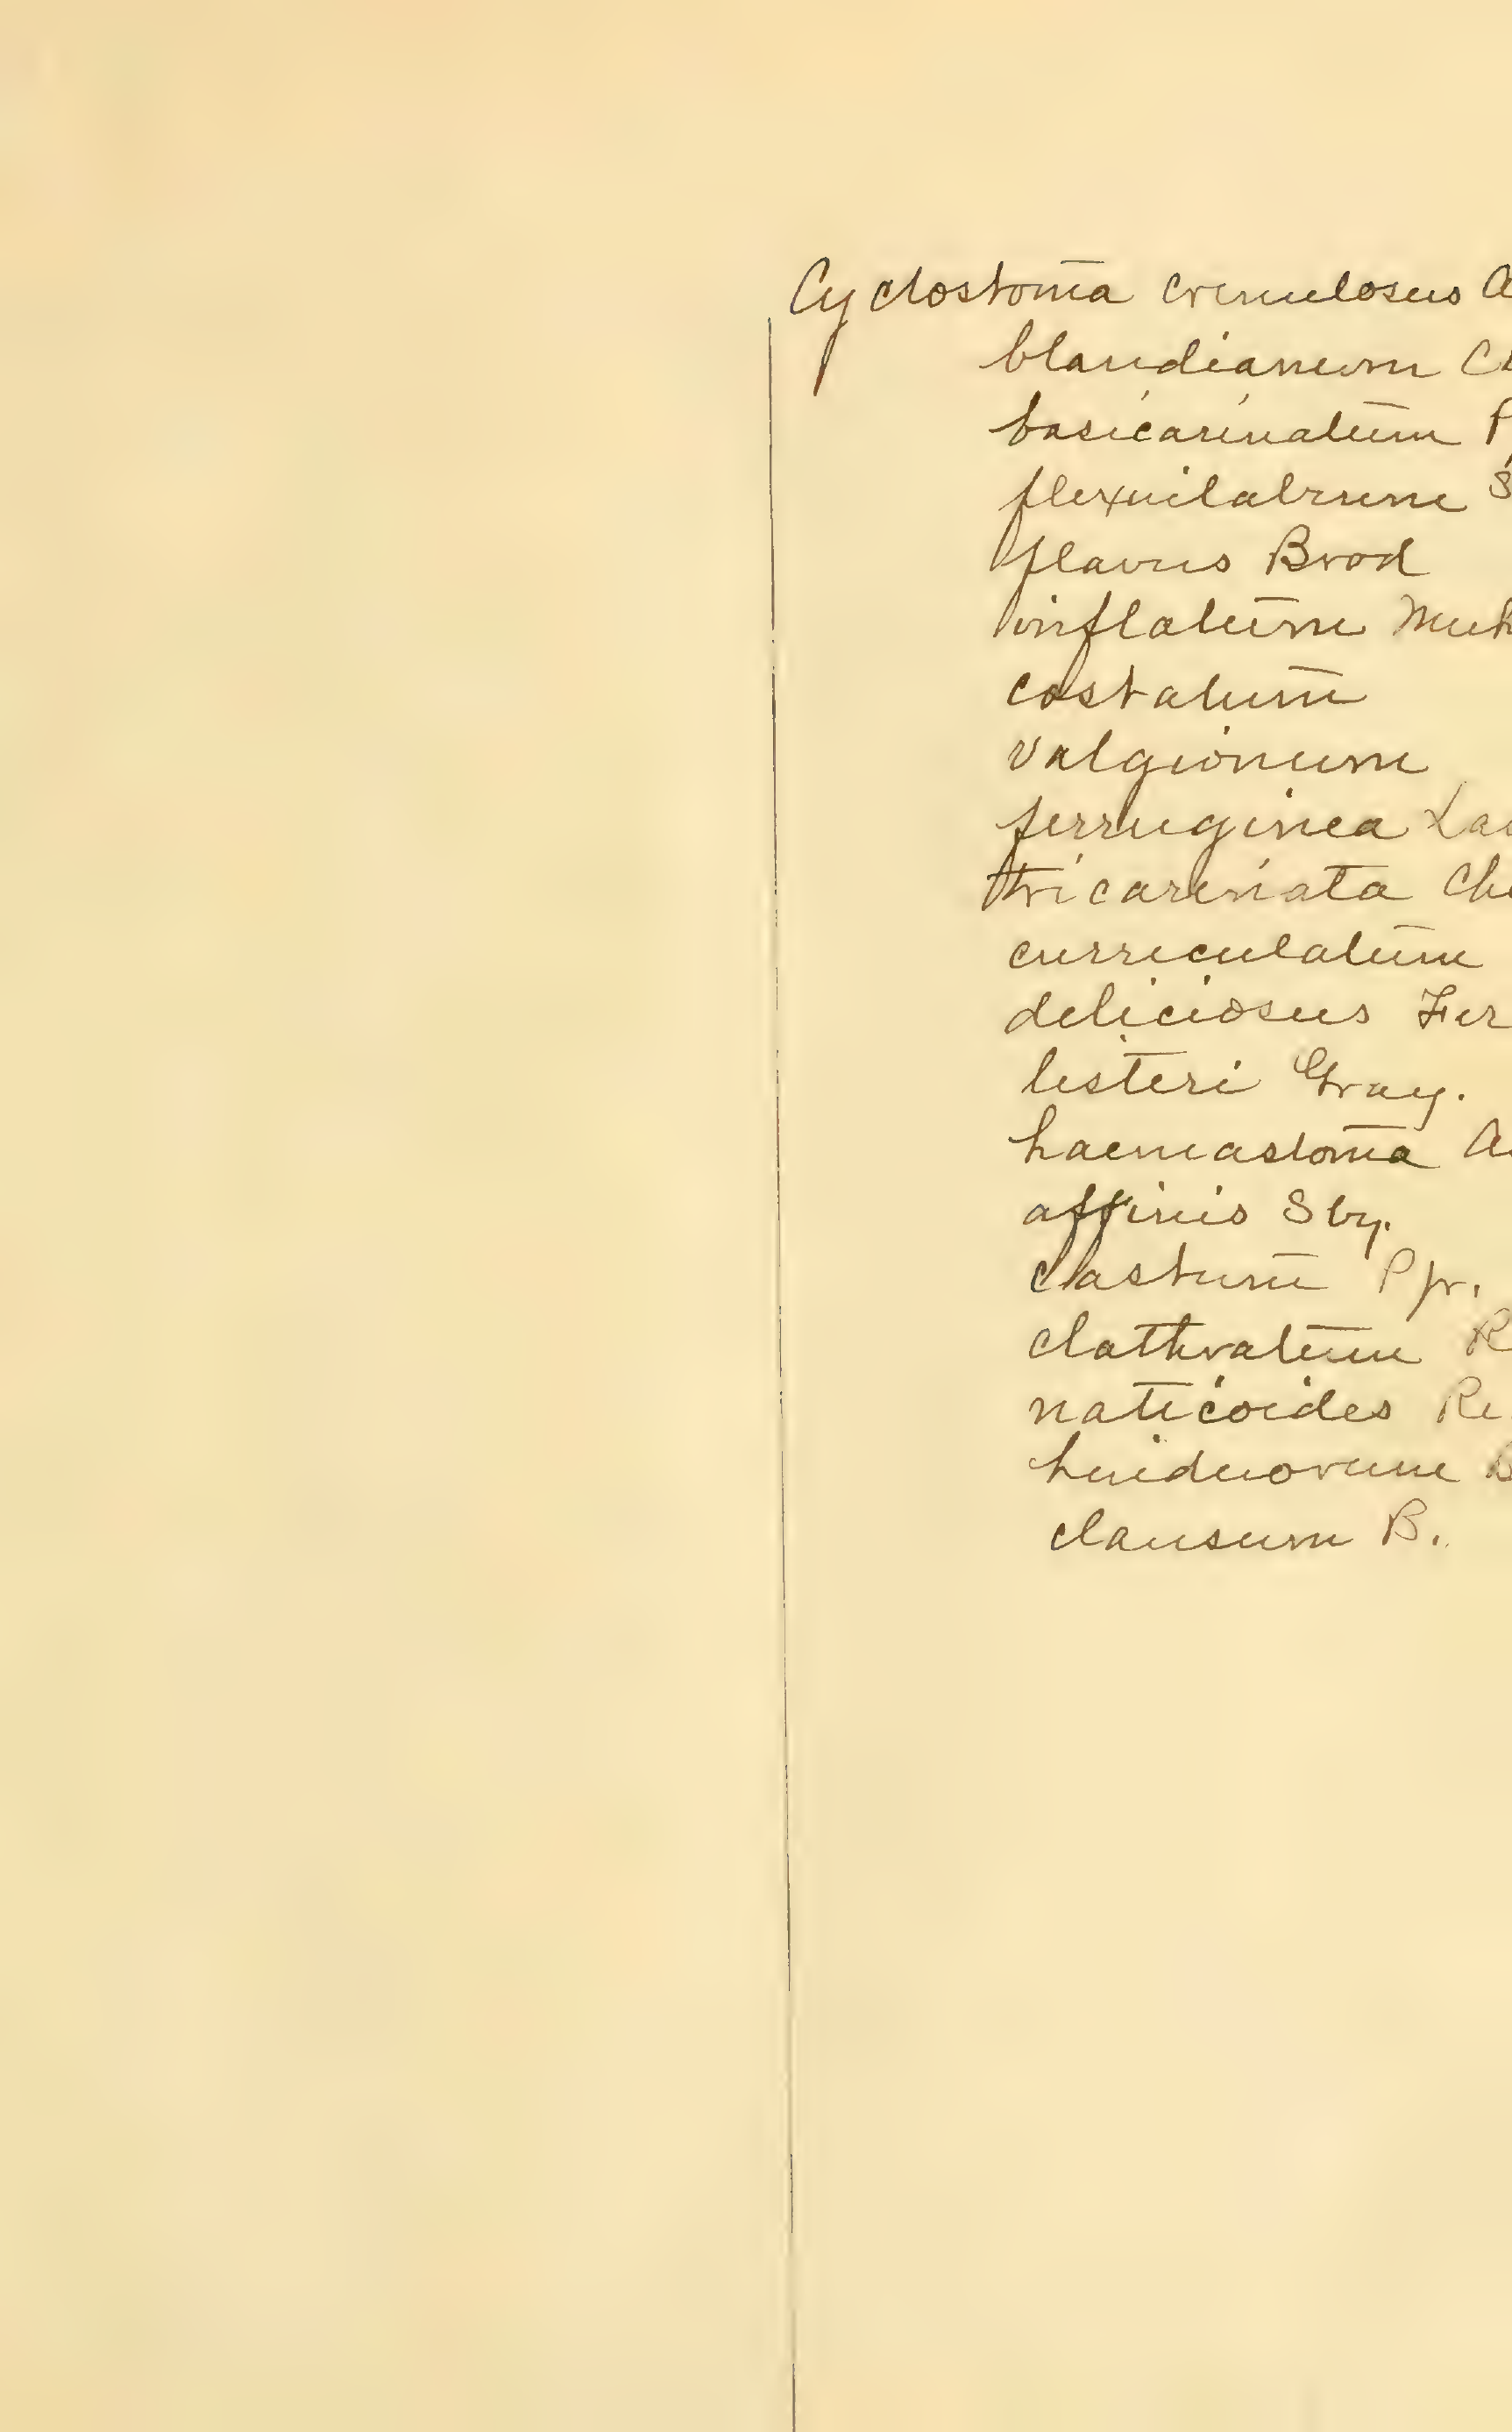 Cyclostoma crenulosus A
blandianum
basicarinatum P
flexuilabrum S
flavus Brod
inflatum
costatum
ferruginea
tricarinata
curriculatum
deliciosus Fer
listeri Gray.
haemastoma A
affinis Sby.
clastum Pfr.
clathratum R
naticoides
clausum B.